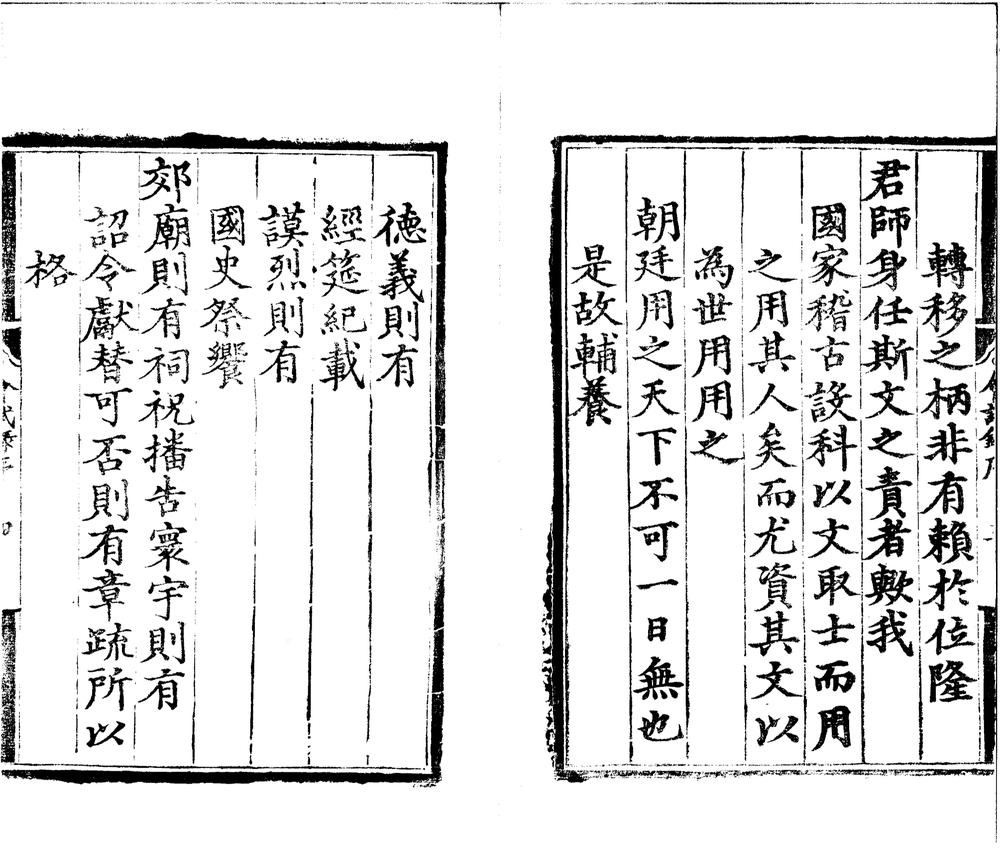 轉移之柄非有賴於位隆
君師身任斯文之責者歟我
國家稽古設科以文取士而用
之用其人矣而尤資其文以
為世用用之
朝廷用之天下不可一日無也
是故輔養
德義則有
經筵紀載
謨烈則有
國史祭饗
郊廟則有祠祝播告寰宇則有
詔令獻替可否則有章疏所以
格